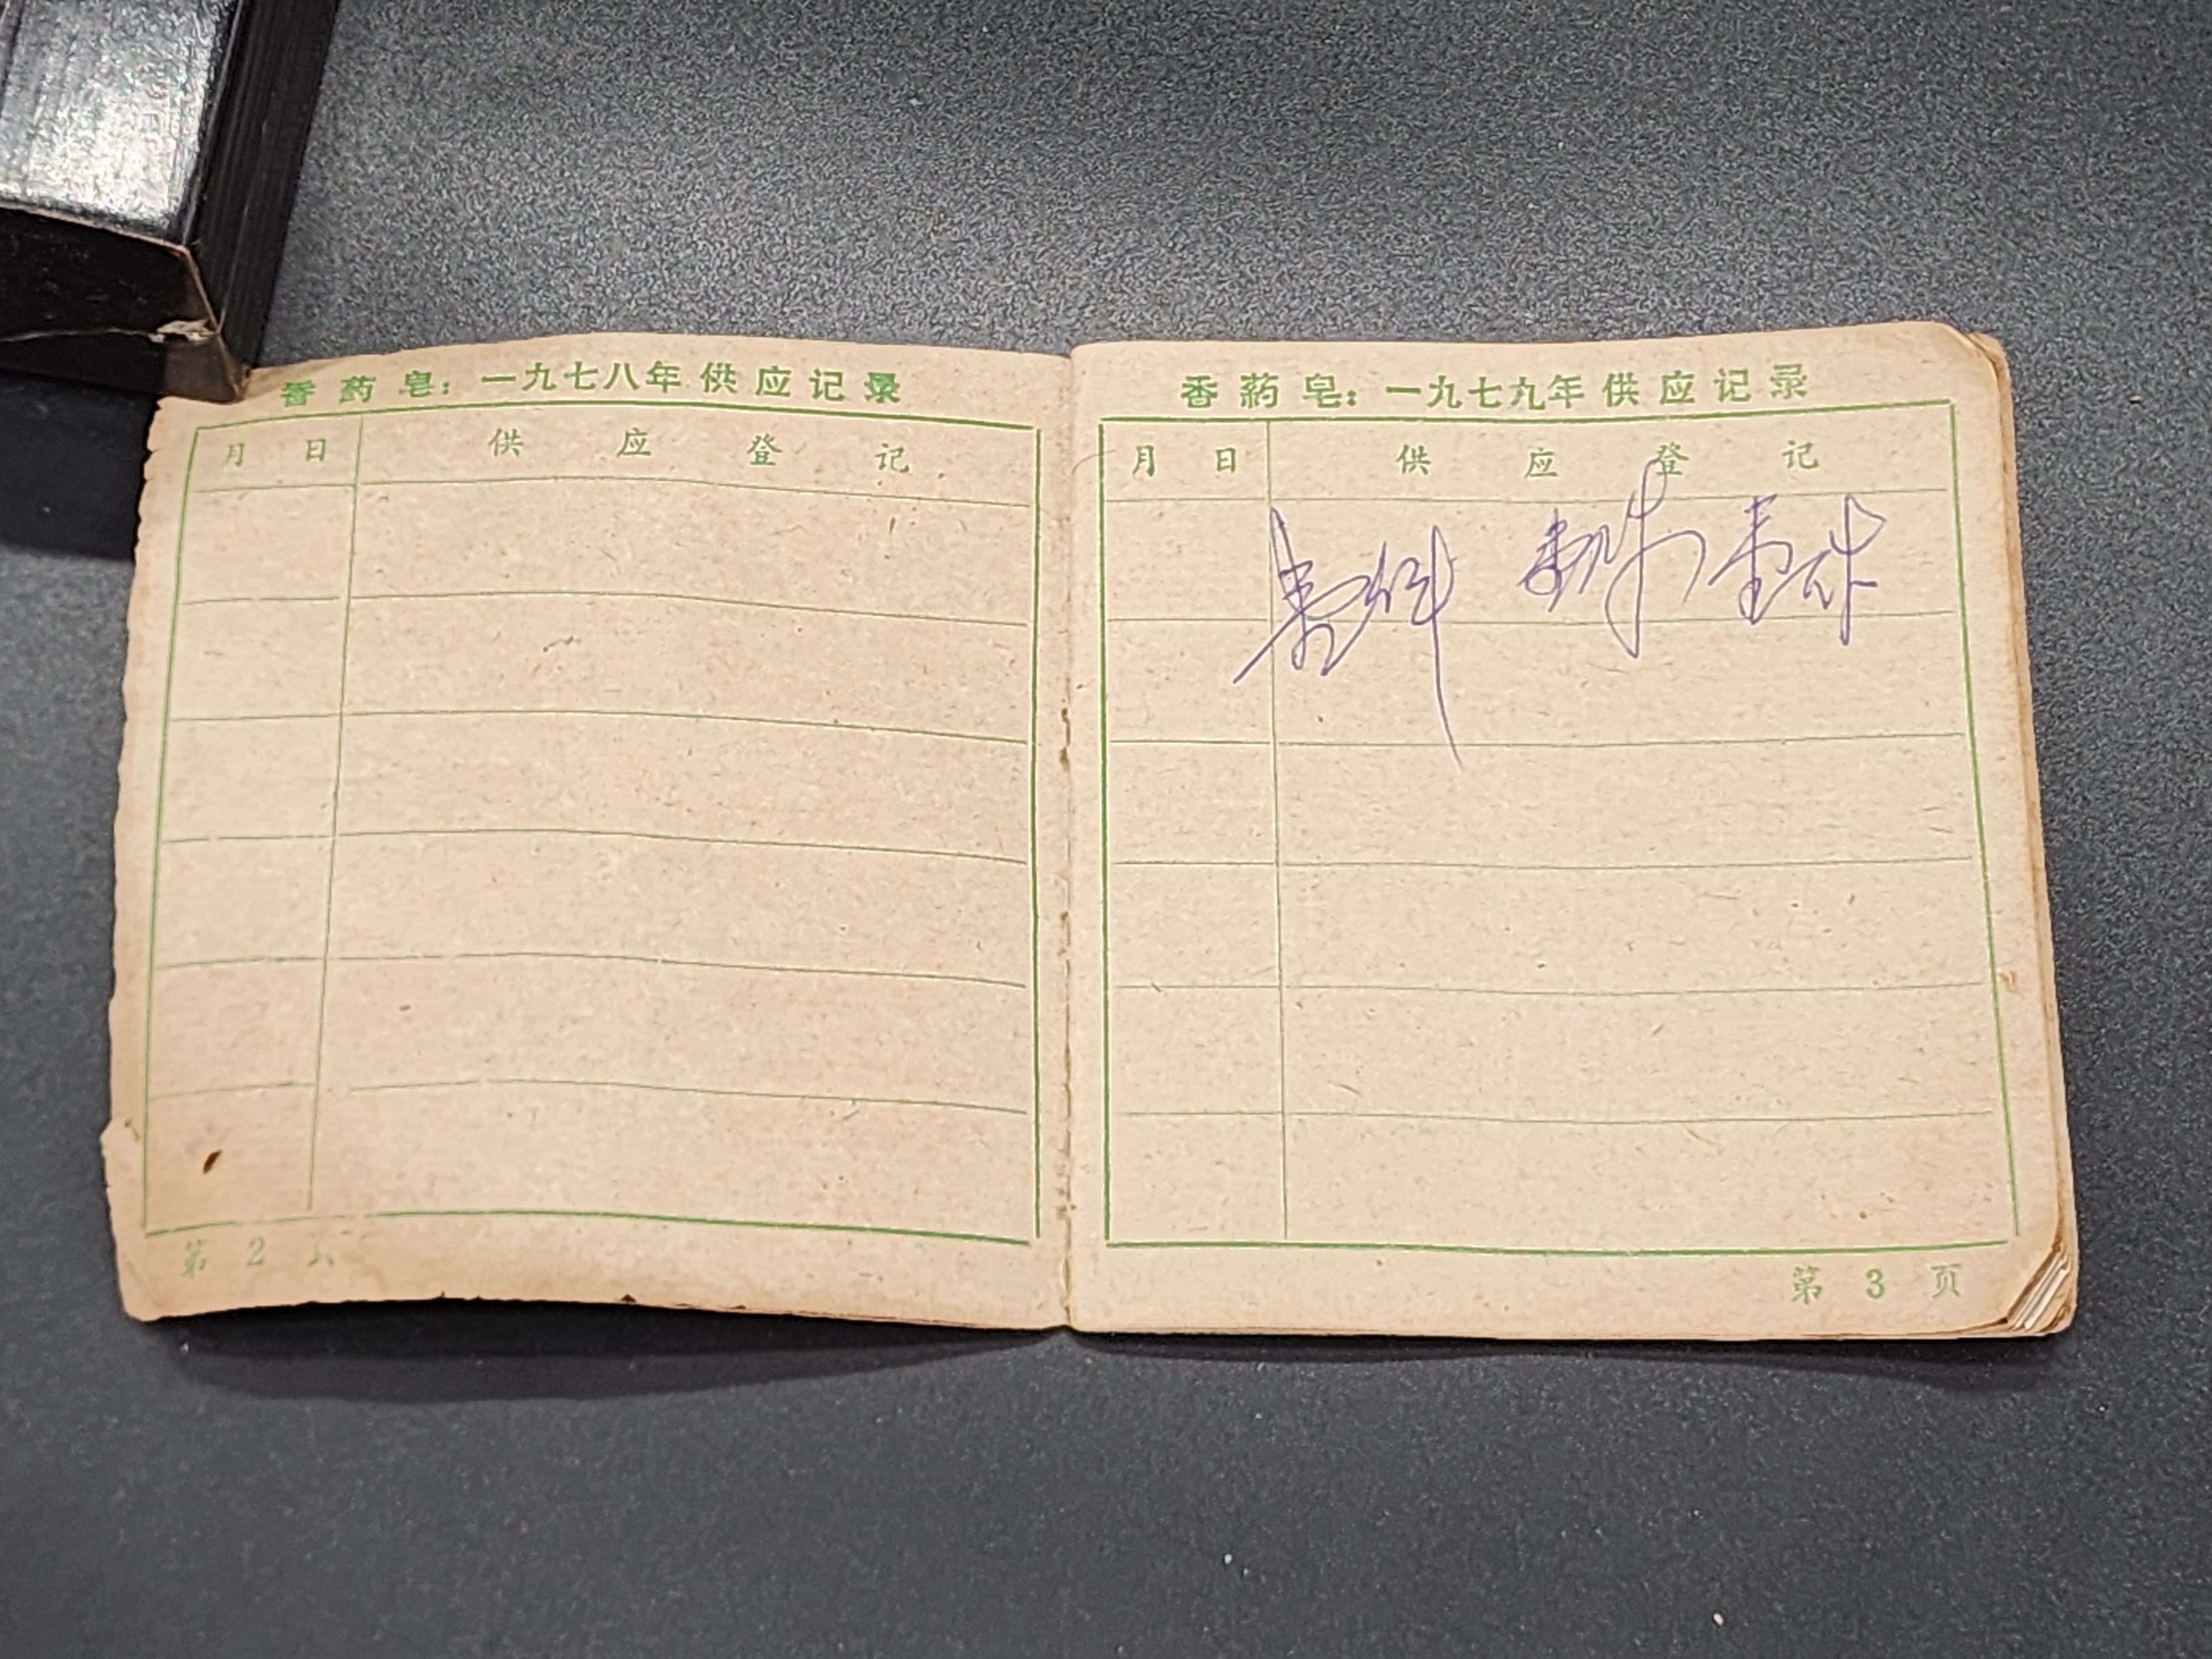 香药皂：一九七八年供应记录
月 日 供应登记
第 2 页
香药皂：一九七九年供应记录
月 日 供应登记
第 3 页